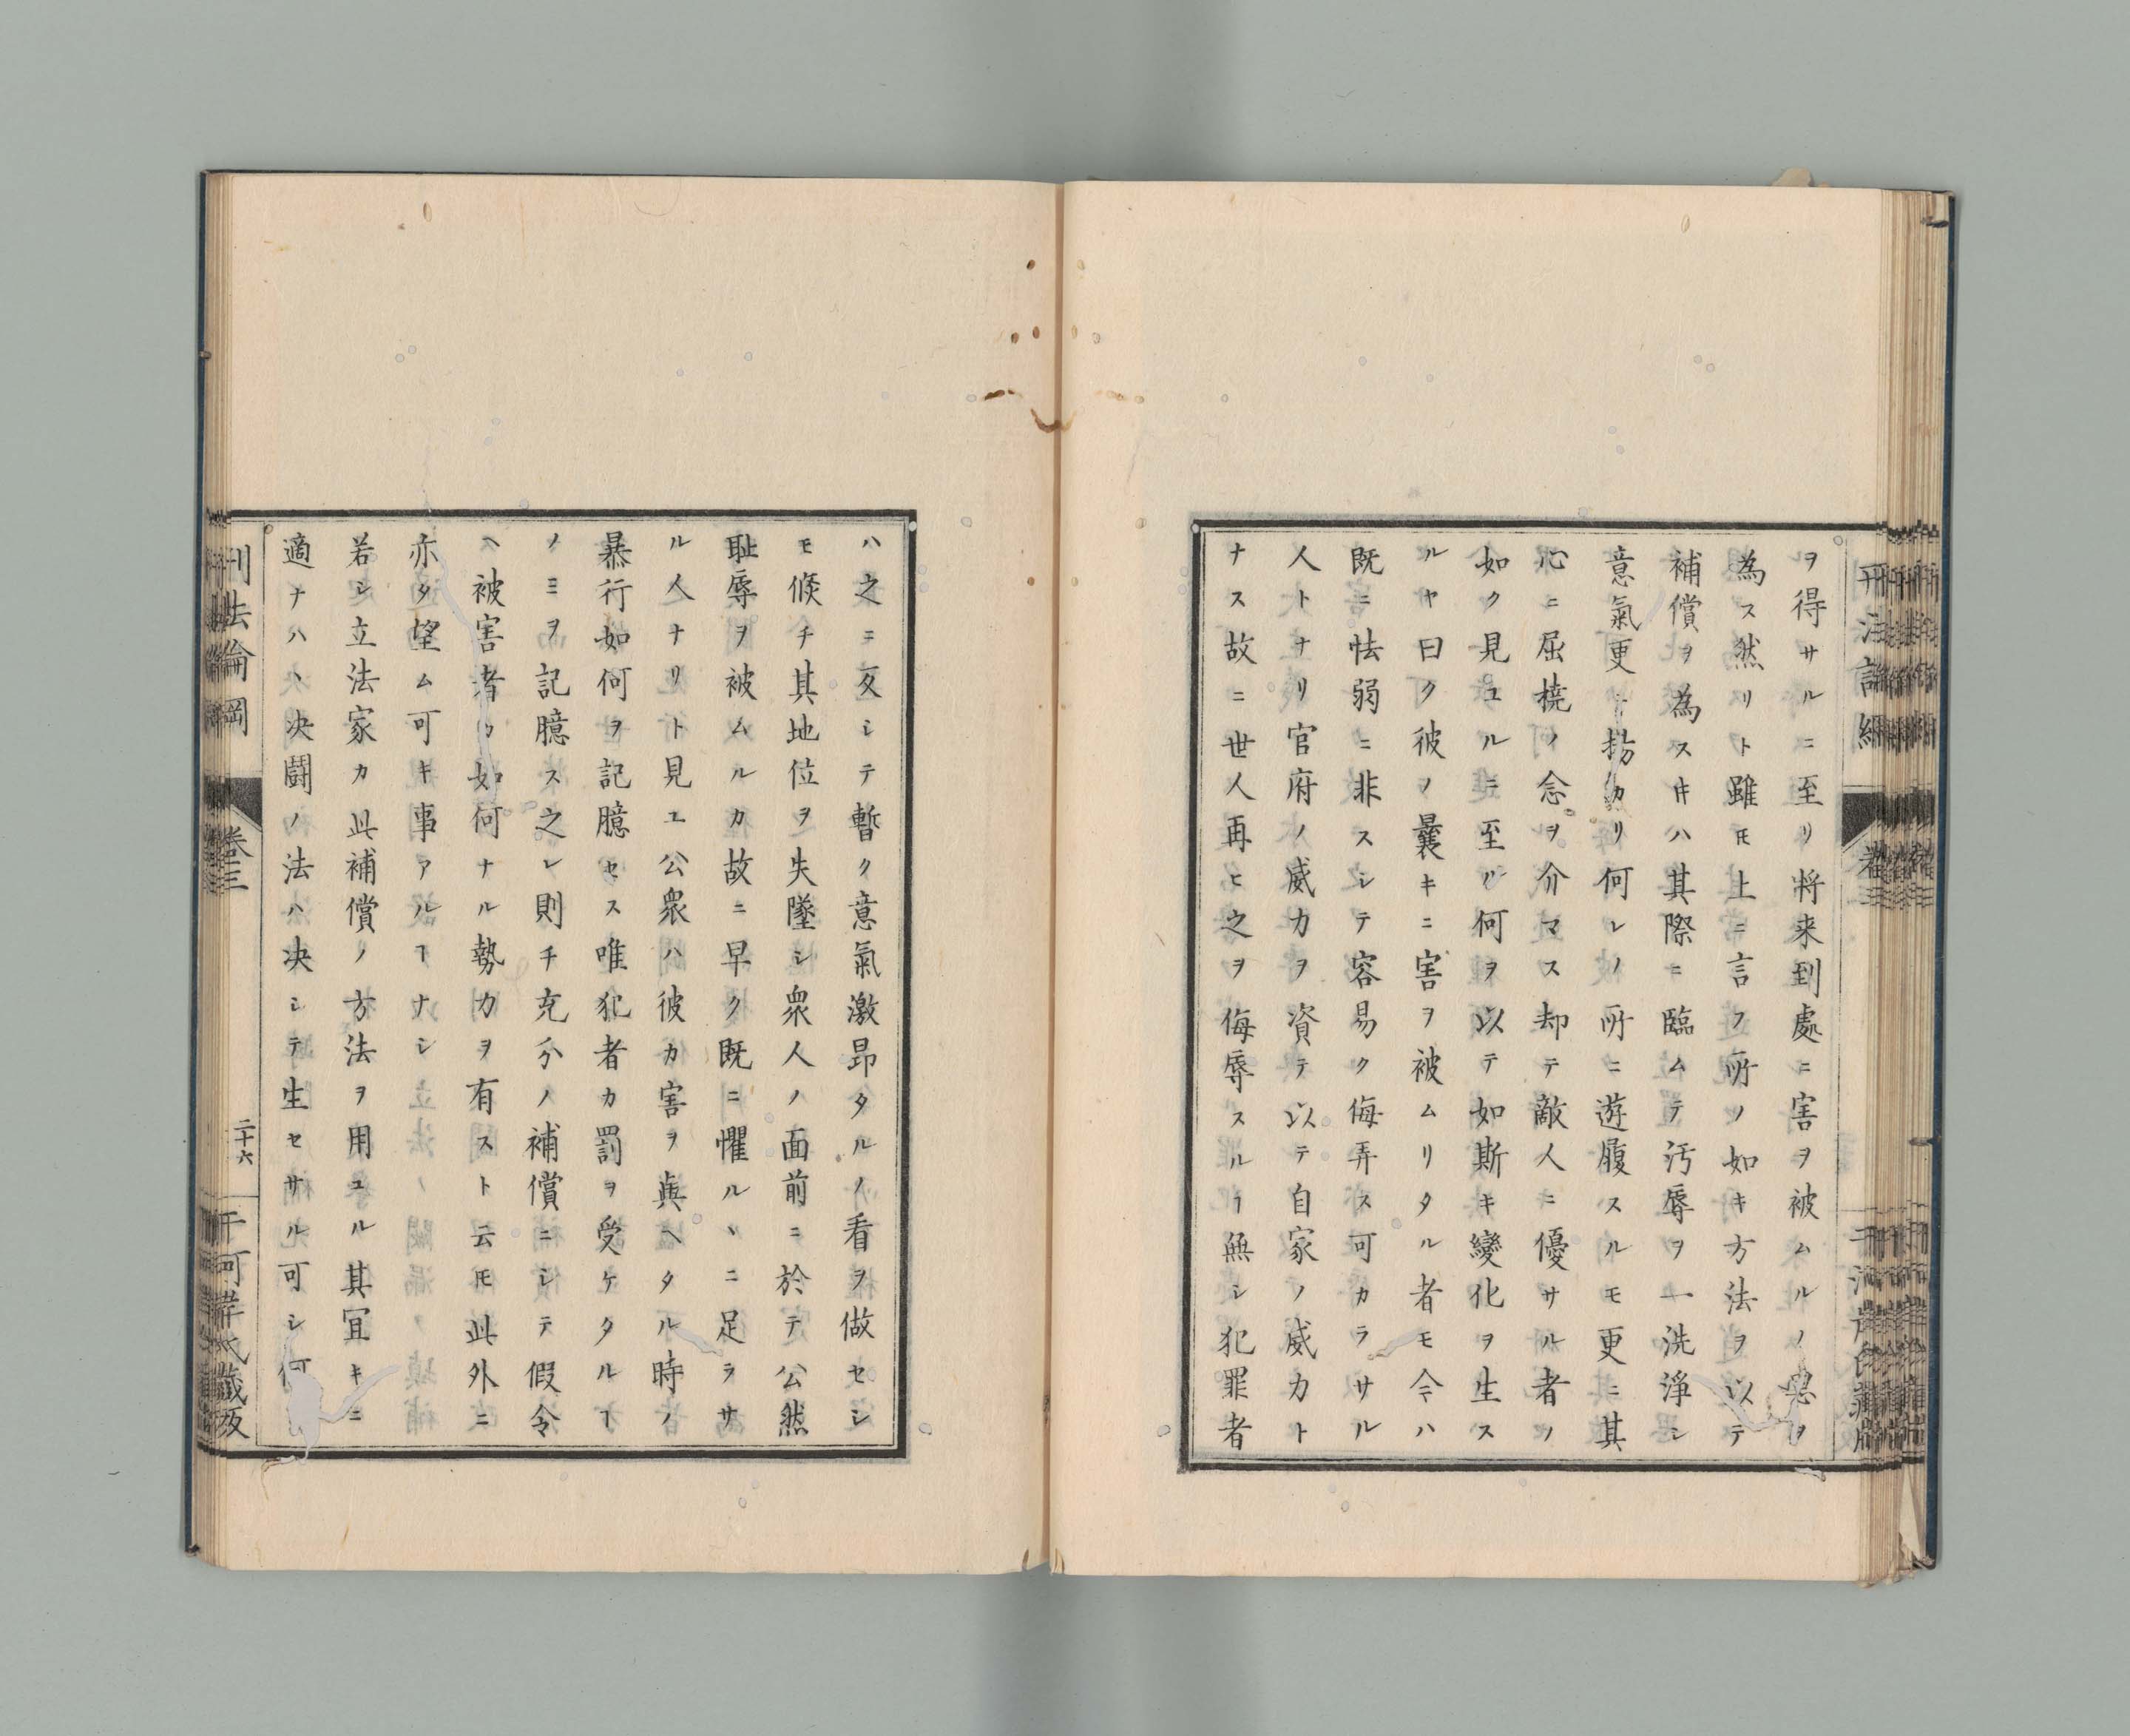 ヲ得サルニ至リ将来到處ニ害ヲ被ムルノ患ヲ
為ス然リト雖𪜈上ニ言フ所ノ如キ方法ヲ以テ
補償ヲ為スキハ其際ニ臨ムテ汚辱ヲ一洗浄シ
意氣更ニ揚カリ何レノ所ニ遊履スルモ更ニ其
心ニ屈撓ノ念ヲ介マス却テ敵人ニ優サル者ノ
如ク見ユルニ至リ何ヲ以テ如斯キ變化ヲ生ス
ルヤ曰ク彼ノ曩キニ害ヲ被ムリタル者モ今ハ
既ニ怯弱ニ非スシテ容易ク侮弄ス可カラサル
人トナリ官府ノ威力ヲ資テ以テ自家ノ威力ト
ナス故ニ世人再ヒ之ヲ侮辱スルヿ無シ犯罪者
ハ之ニ反シテ暫ク意氣激昂タルノ看ヲ做セシ
モ倏チ其地位ヲ失墜シ衆人ノ面前ニ於テ公然
耻辱ヲ被ムルカ故ニ早ク既ニ懼ルヽニ足ラサ
ル人ナリト見エ公衆ハ彼カ害ヲ與ヘタル時ノ
暴行如何ヲ記臆セス唯犯者カ罰ヲ受ケタルヿ
ノミヲ記臆ス之レ則チ充分ノ補償ニシテ假令
ヘ被害者カ如何ナル勢力ヲ有スト云𪜈此外ニ
亦タ望ム可キ事アルヿナシ
若シ立法家カ此補償ノ方法ヲ用ユル其冝キニ
適ナハヽ决闘ノ法ハ决シテ生セサル可シ何
刑法論綱
卷三
二十六